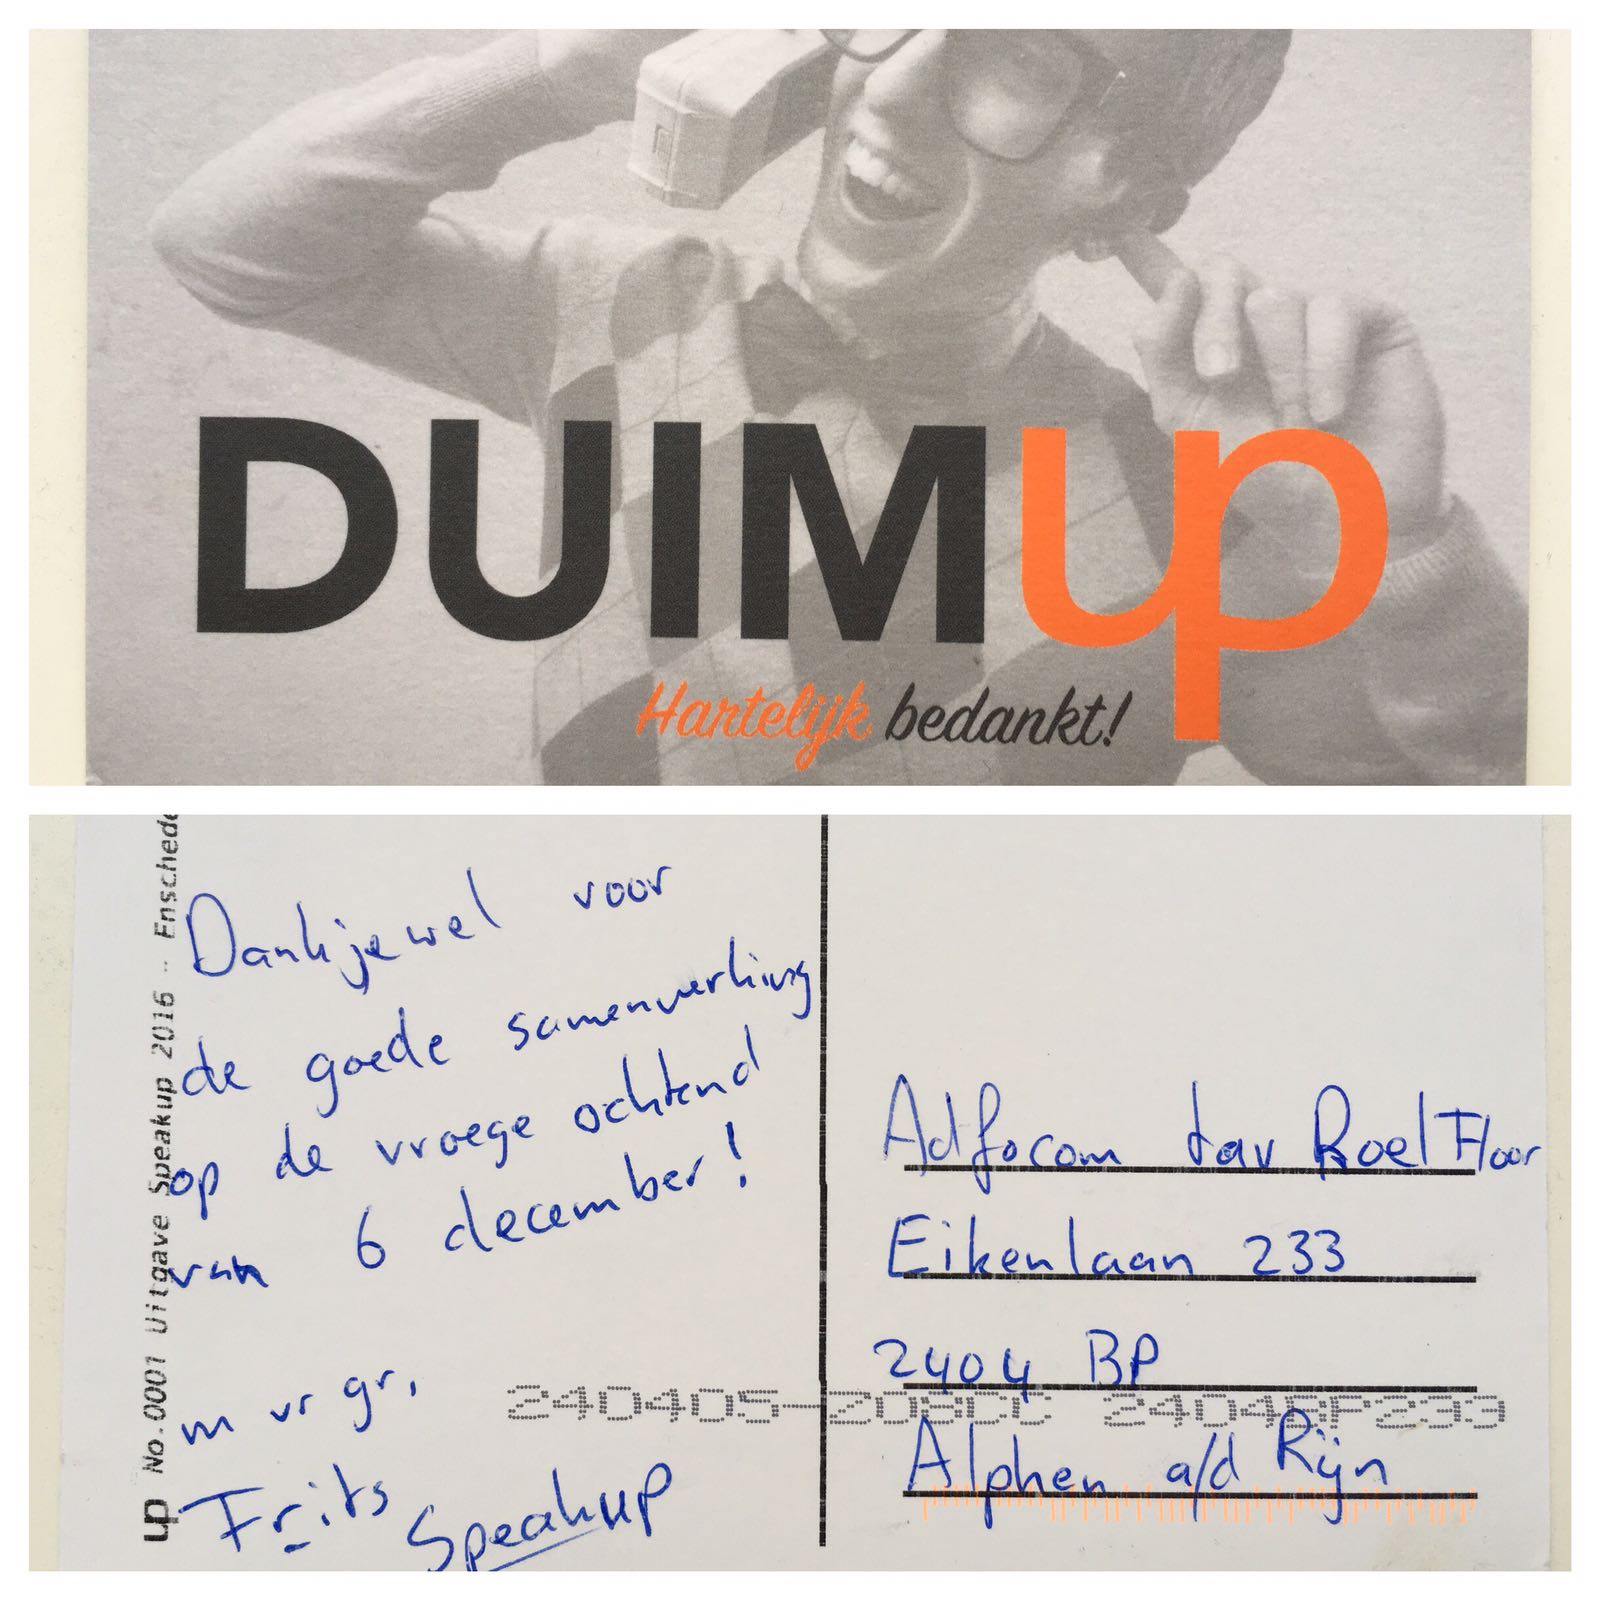 DUIMup
Hartelijk bedankt!
up No.0001 Uitgave Speakup 2016 - Enschede
Dankjewel voor
de goede samenwerking
op de vroege ochtend
van 6 december!
m vr gr,
Frits
Speakup
Adfocom tav Roel Floor
Eikenlaan 233
2404 BP
240405-208CC 2404BP233
Alphen a/d Rijn